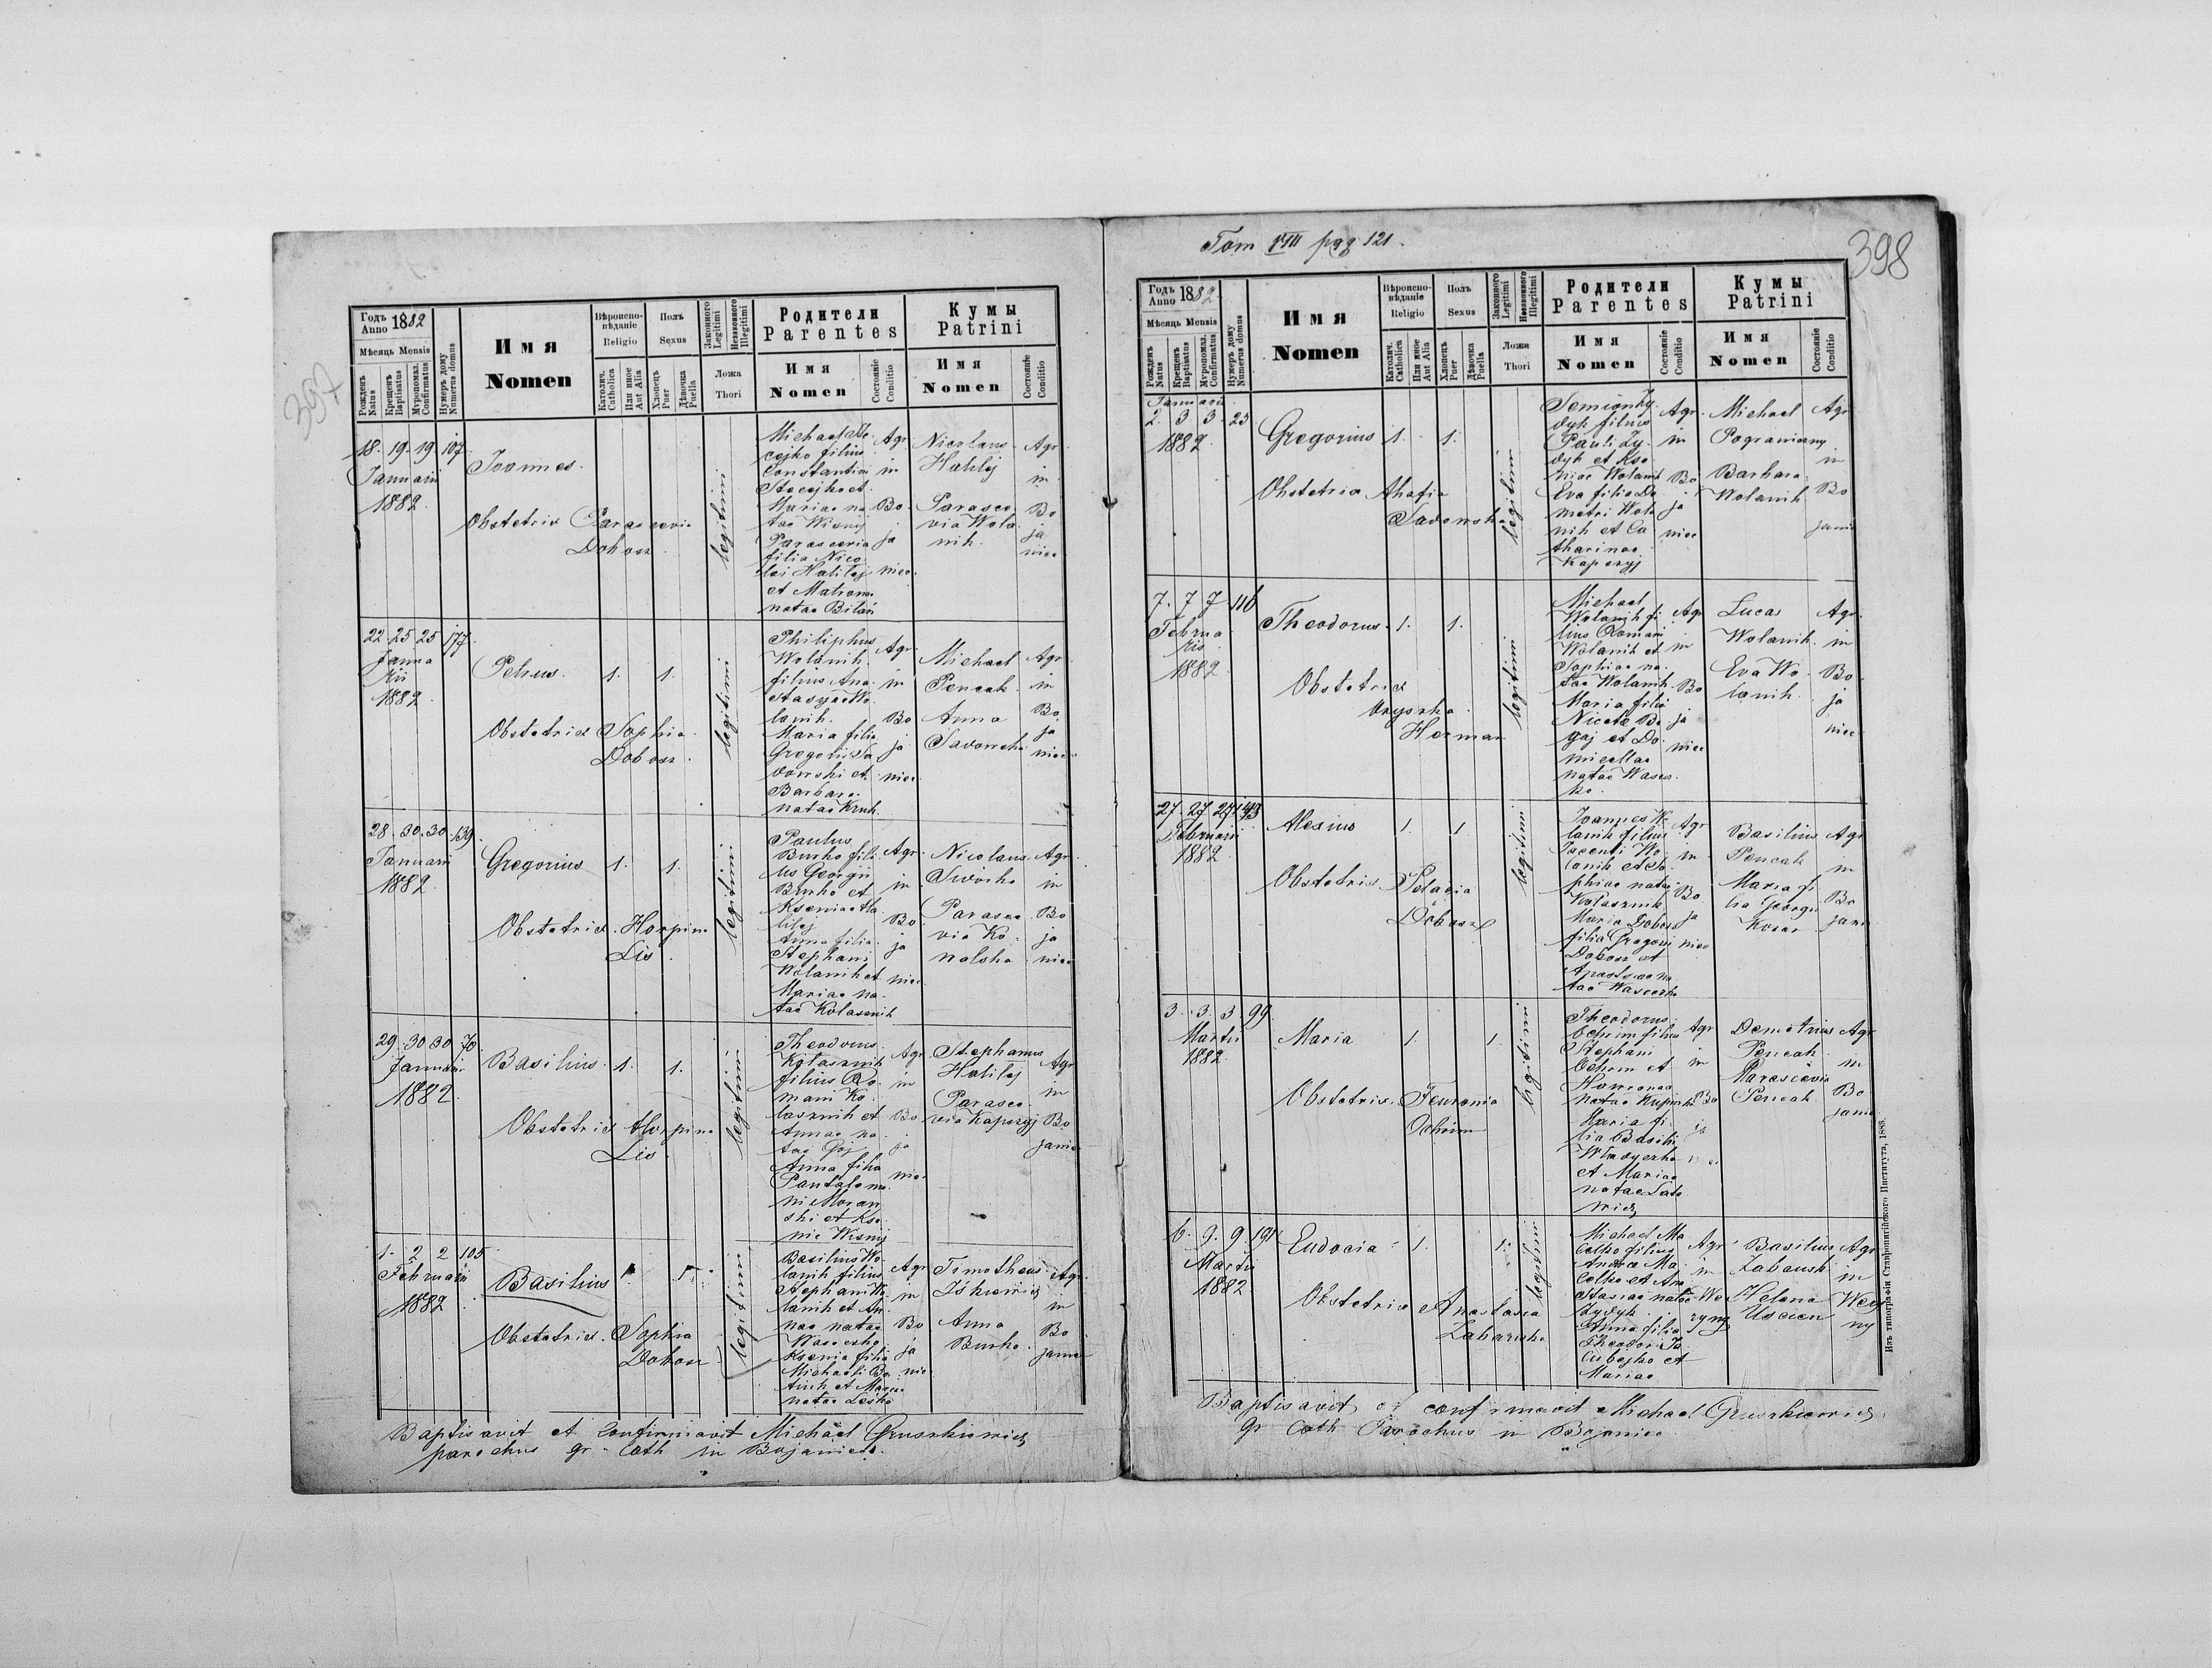 397
Годъ Anno 1882
Мѣсяць Mensis
Рожденъ Natus
Крещенъ Baptisatus
Мѵропомаз. Confirmatus
Нумеръ дому Numerus domus
Имя
Nomen
Вѣроиспо-
вѣданіе
Religio
Католич. Catholica
Или иное Aut Alia
Полъ
Sexus
Хлопець Puer
Дѣвочка Puella
Законного Legitimi
Незаконного Illegitimi
Ложа
Thori
Родители
Parentes
Имя
Nomen
Состояніе Conditio
Кумы
Patrini
Имя
Nomen
Состояніе Conditio
18. 19. 19. 107.
Januarii
1882.
Joannes.
Obstetrix Parascevia
Dobosz.
legitimi
filius
Constantini
Stecejko et
Mariae na
tae Wisnij
Parascevia
filia Nico
lai Halilej
et
natae Bilań
Agr. in Bo ja niec.
Nicolaus
Halilej
Parasce
via Wola
nik.
Agr. in Bo ja niec
22. 25. 25. 177.
Janua
rii
1882.
Petrus. 1. 1.
Obstetrix Sophia
Dobosz.
legitimi
Philiphus
Wolanik.
filius Ana
stasyae Wo
lanik.
Maria filia
Gregorii Sa
dowski et
Barbara
natae Kruk.
Agr. in Bo ja niec.
Michael
Pencak.
Anna
Sadowska
Agr. in Bo ja niec
28. 30. 30. 139.
Januarii
1882.
Gregorius 1. 1.
Obstetrix. Horpina
Lis.
legitimi
Paulus
Burko fili
us Georgii
Burko et
Kseniae Ha
lilej
Anna filia
Stephani
Wolanik et
Mariae na
tae Kolasznik
Agr. in Bo ja niec
Nicolaus
Sworko
Parasce
via Ko
nalska
Agr. in Bo ja niec
29. 30. 30. 70.
Januarii
1882.
Basilius. 1. 1.
Obstetrix Horpina
Lis.
legitimi
Theodorus
Kolasznik
filius Ro
mani Ko
lasznik et
Annae na
tae Goj
Anna filia
Pantalemo
ni Moraw
ski et Kse
nie Wisnij
Agr. in Bo ja niec
Stephanus
Halilej
Parasce
via Kapszyj
Agr. in Bo janiec
1. 2. 2. 105
Februarii
1882.
Basilius 1. 1.
Obstetrix. Sophia
Dobosz
legitimi
Basilius Wo
lanik filius
Stephani Wo
lanik et An
nae natae
Wasczko
Ksenia filia
Michaeli
et
natae Lesko
Agr in Bo ja niec
Timotheus
Iśkiewicz
Anna
Burko.
Agr. in Bo janiec
Baptisavit et Confirmavit Michael Gruszkiewicz
parochus gr. Cath in Bojaniec.
Tom VIII pag 121.
398
Годъ Anno 1882.
Мѣсяць Mensis
Рожденъ Natus
Крещенъ Baptisatus
Мѵропомаз. Confirmatus
Нумеръ дому Numerus domus
Имя
Nomen
Вѣроиспо-
вѣданіе
Religio
Католич. Catholica
Или иное Aut Alia
Полъ
Sexus
Хлопець Puer
Дѣвочка Puella
Законного Legitimi
Незаконного Illegitimi
Ложа
Thori
Родители
Parentes
Имя
Nomen
Состояніе Conditio
Кумы
Patrini
Имя
Nomen
Состояніе Conditio
Januarii
2. 3 3. 25
1882.
Gregorius 1. 1.
Obstetrix Ahafia
Sadowska
legitimi
Semion Zy
dyk filius
Pauli Zy
dyk et Kse
niae Wolanik
Eva filia De
metri Wola
nik et Ca
tharinae
Kapszyj
Agr. in Bo ja niec
Michael
Pograniczny
Barbara
Wolanik
Agr in Bo janiec
7. 7. 7. 116
Februa
rii
1882.
Theodorus. 1. 1.
Obstetrix
Oryszka
Herman
legitimi
Michael
Wolanik fi
lius Romani
Wolanik et
Sophiae na
tae Wolanik
Maria filia
Nicetae Bo
gaj et Do
micellae
natae Wascz
ko.
Agr in Bo ja niec
Lucas
Wolanik.
Eva Wo
lanik.
Agr. in Bo ja niec
27. 27. 27. 43
Februarii
1882.
Alexius 1. 1
Obstetrix. Pelagia
Dobosz
legitimi
Joannes Wo
lanik filius
Jacenti Wo
lanik et So
phiae natae
Kolasznik
Maria Dobosz
filia Gregorii
Dobosz et
na
tae Wasczko
Agr in Bo ja niec
Basilius
Pencak
Maria fi
lia Georgii
Kosar
Agr in Bo janiec
3. 3. 3. 99.
Martii
1882.
Maria 1. 1.
Obstetrix. Feuronia
Ochrim
legitimi
Theodorus
Ochrim filius
Stephani
Ochrim et
natae
Maria fi
lia Basili
et Mariae
natae
Agr in Bo ja niec
Demetrius
Pencak.
Parascevia
Pencak
Agr in Bo janiec
6. 9. 9. 191
Martii
1882.
Eudocia 1. 1.
Obstetrix Anastasia
Zabauska
legitimi
Michael Ma
celko filius
Andreae Ma
celko et Ana
stasiae natae
Zydyk
Anna filia
Theodori Ja
cubejko et
Mariae
Agr in We ryny
Basilius
Zabauski
Helena
Uscien
Agr in Wery ny
Baptisavit et confirmavit Michael Gruszkiewicz.
gr Cath Parochus in Bojaniec
Изъ типографіи Ставропигійского Института, 1883.